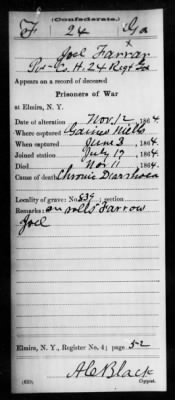 (Confederate.)
F 24 Ga
Joel Farrar
Pvt Co. H. 24 Regt Ga
Appears on a record of deceased
Prisoners of War
at Elmira, N. Y.
Date of alteration Nov. 12, 1864.
Where captured Gaines Mills
When captured June 3, 1864.
Joined station July 17, 1864.
Died Nov. 11, 1864.
Cause of death Chronic Diarrhoea
Locality of grave: No. 839; section
Remarks: on rolls Farrow
Joel
Elmira, N. Y., Register No. 4; page 52
A C Black
(639) Copyist.